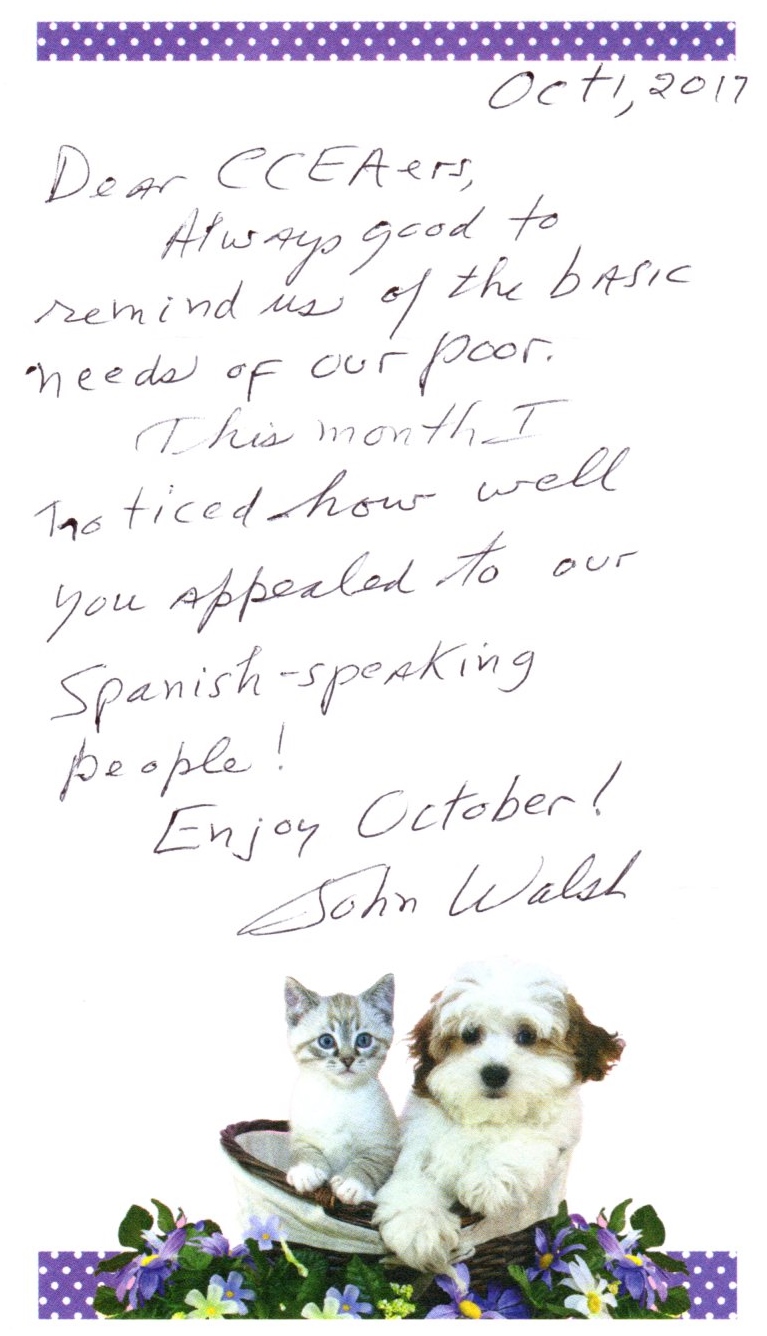 Oct 1, 2017
Dear CCEAers,
Always good to
remind us of the bASIC
needs of our poor.
This month I
noticed how well
you appealed to our
Spanish-speaking
people!
Enjoy October!
John Walsh